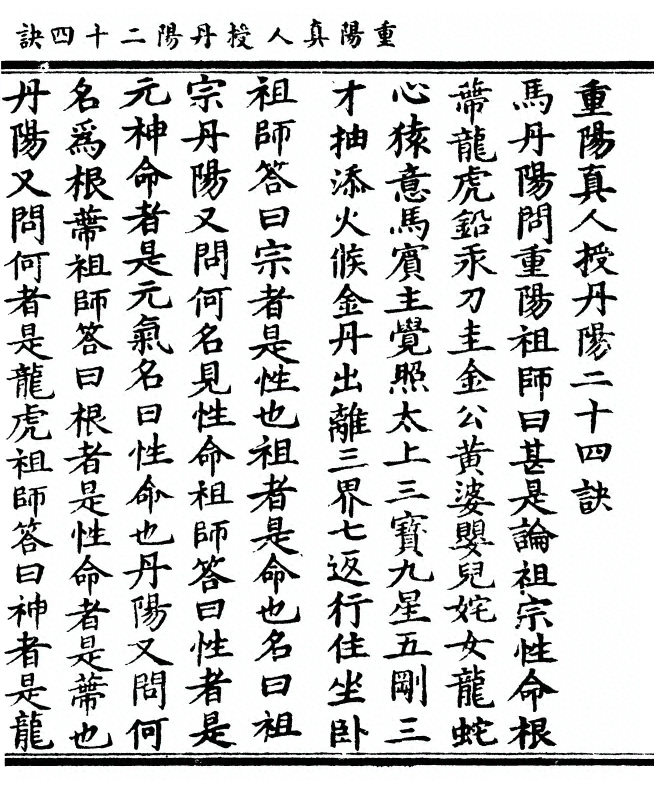 重陽真人授丹陽二十四訣
重陽真人授丹陽二十四訣
馬丹陽問重陽祖師曰甚是論祖宗性命根
蔕龍虎鉛汞刀圭金公黄婆嬰兒姹女龍蛇
心猿意馬賓主覺照太上三寶九星五剛三
才抽添火候金丹出離三界七返行住坐卧
祖師答曰宗者是性也祖者是命也名曰祖
宗丹陽又問何名見性命祖師答曰性者是
元神命者是元氣名曰性命也丹陽又問何
名爲根蔕祖師答曰根者是性命者是蔕也
丹陽又問何者是龍虎祖師答曰神者是龍